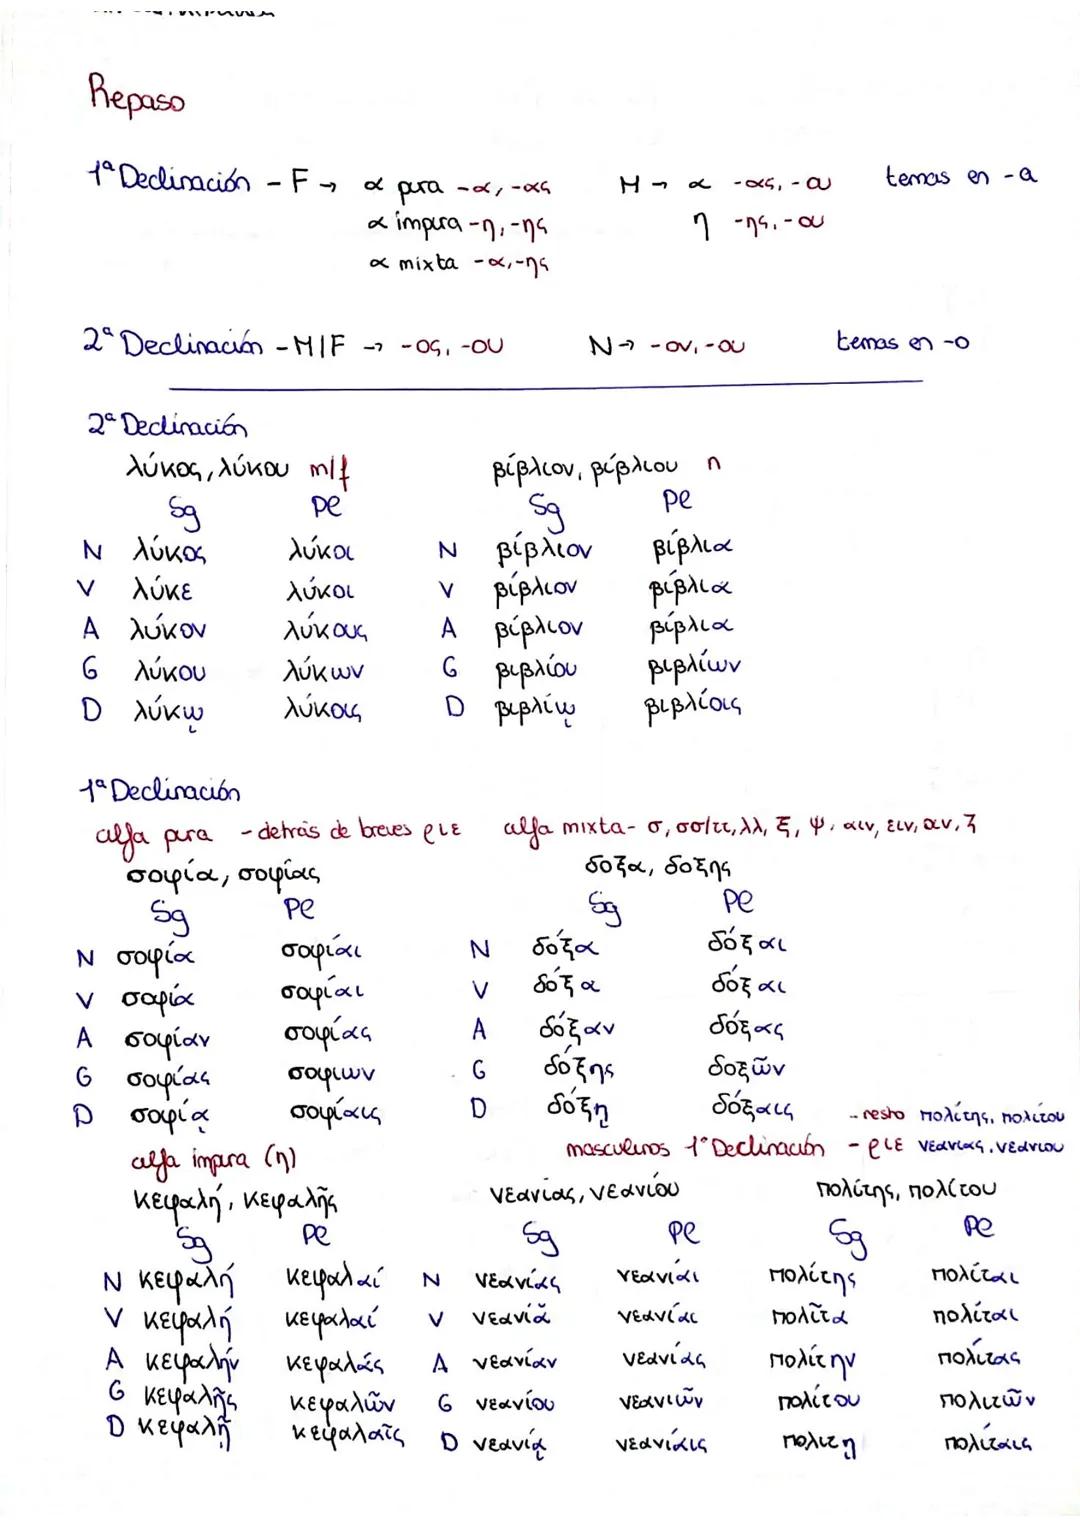 Repaso
1ª Declinación - F → α pura -α, -ας M → α -ας, -ου temas en -a
α impura -η, -ης η -ης, -ου
α mixta -α, -ης
2ª Declinación - M/F → -ος, -ου N → -ον, -ου temas en -o
2ª Declinación
λύκος, λύκου m/f βίβλιον, βίβλιου n
Sg Pl Sg Pl
N λύκος λύκοι N βίβλιον βίβλια
V λύκε λύκοι V βίβλιον βίβλια
A λύκον λύκους A βίβλιον βίβλια
G λύκου λύκων G βιβλίου βιβλίων
D λύκῳ λύκοις D βιβλίῳ βιβλίοις
1ª Declinación
alfa pura - detrás de breves ρ ι ε alfa mixta - σ, σσ/ττ, λλ, ξ, ψ, αιν, ειν, αν, ζ
σοφία, σοφίας δοξα, δοξης
Sg Pl Sg Pl
N σοφία σοφίαι N δόξα δόξαι
V σοφία σοφίαι V δόξα δόξαι
A σοφίαν σοφίας A δόξαν δόξας
G σοφίας σοφιων G δόξης δοξῶν
D σοφίᾳ σοφίαις D δόξῃ δόξαις - resto πολίτης, πολιτου
alfa impura (η) masculinos 1ª Declinación - ρ ι ε νεανιας, νεανιου
κεφαλή, κεφαλῆς νεανίας, νεανίου πολίτης, πολίτου
Sg Pl Sg Pl Sg Pl
N κεφαλή κεφαλαί N νεανίας νεανίαι πολίτης πολίται
V κεφαλή κεφαλαί V νεανίᾰ νεανίαι πολῖτα πολίται
A κεφαλήν κεφαλάς A νεανίαν νεανίας πολίτην πολίτας
G κεφαλῆς κεφαλῶν G νεανίου νεανιῶν πολίτου πολιτῶν
D κεφαλῇ κεφαλαῖς D νεανίᾳ νεανίαις πολιτῃ πολίταις